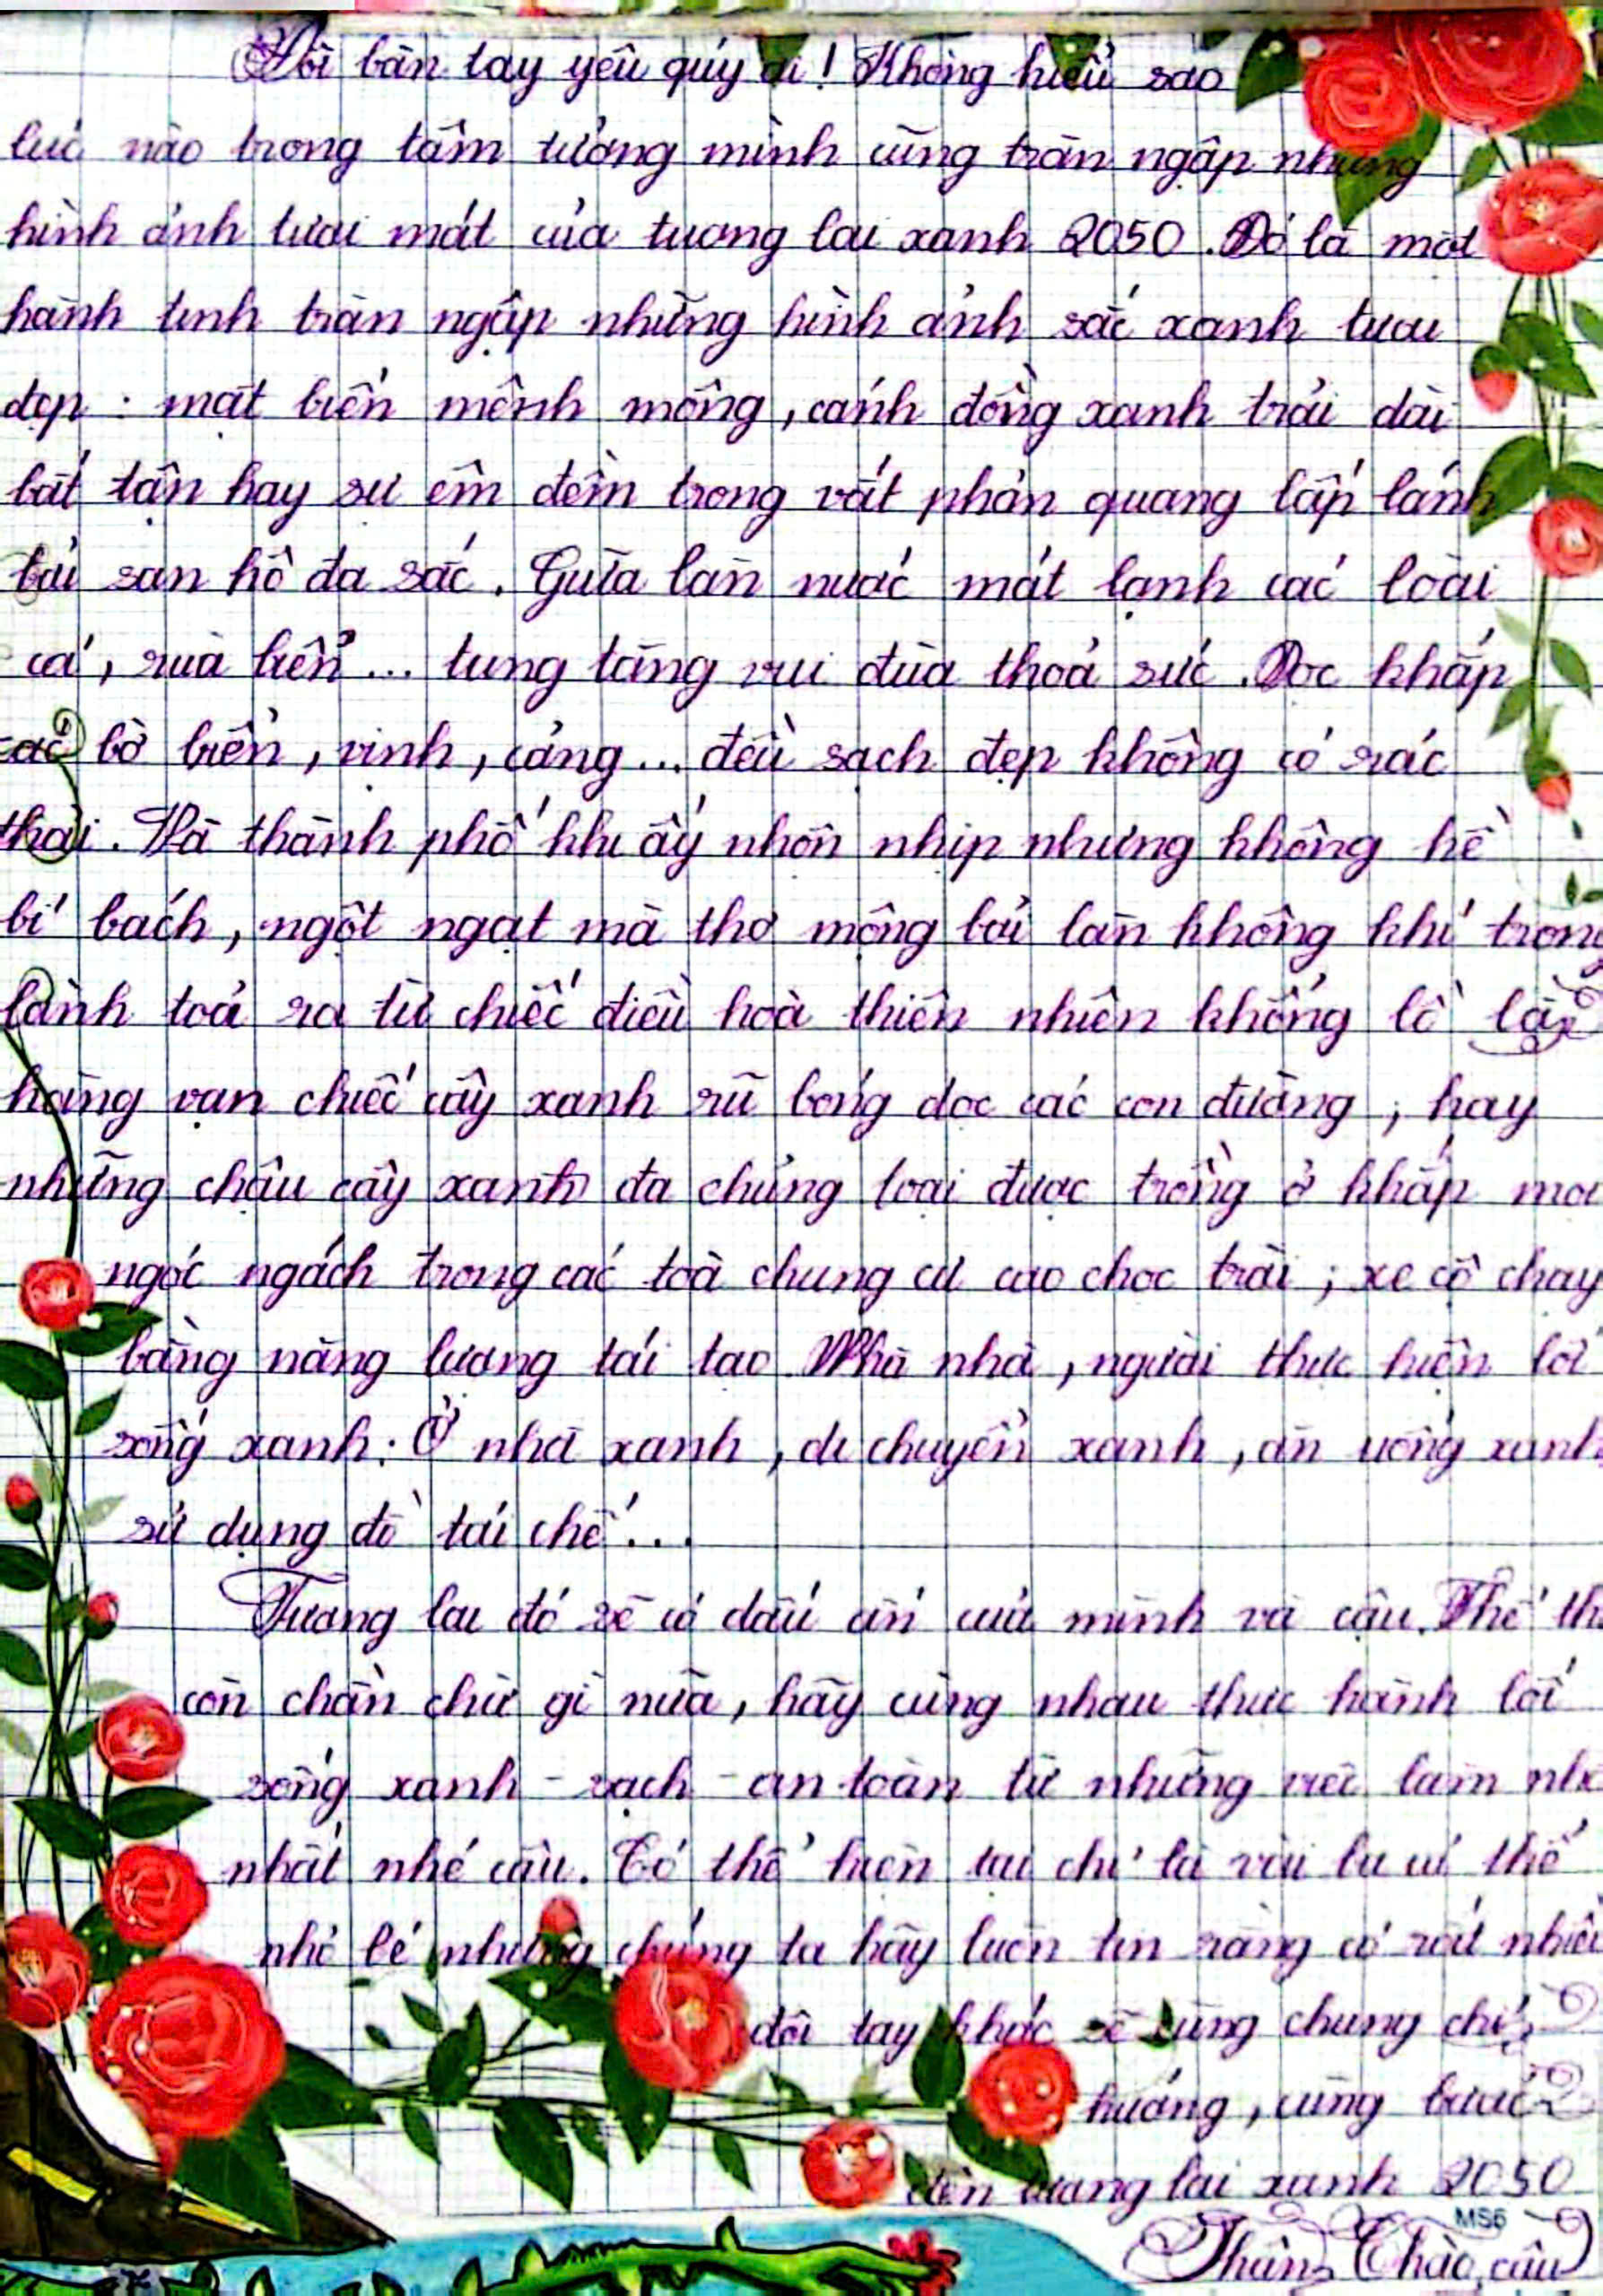 Đôi bàn tay yêu quý ơi! Không hiểu sao
lúc nào trong tâm tưởng mình cũng tràn ngập những
hình ảnh tươi mát của tương lai xanh 2050. Đó là một
hành tinh tràn ngập những hình ảnh sắc xanh tươi
đẹp: mặt biển mênh mông, cánh đồng xanh trải dài
bất tận hay sự êm đềm trong vắt phản quang lấp lánh
bởi san hô đa sắc. Giữa làn nước mát lạnh các loài
cá, rùa biển... tung tăng vui đùa thoả sức. Dọc khắp
các bờ biển, vịnh, cảng... đều sạch đẹp không có rác
thải. Và thành phố khi ấy nhộn nhịp nhưng không hề
bí bách, ngột ngạt mà thơ mộng bởi làn không khí trong
lành toả ra từ chiếc điều hoà thiên nhiên khổng lồ là
hàng vạn chiếc cây xanh rũ bóng dọc các con đường; hay
những chậu cây xanh đa chủng loại được trồng ở khắp mọi
ngóc ngách trong các toà chung cư cao chọc trời; xe cộ chạy
bằng năng lượng tái tạo. Nhà nhà, người thực hiện lối
sống xanh: Ở nhà xanh, di chuyển xanh, ăn uống xanh
sử dụng đồ tái chế...
Tương lai đó sẽ có dấu ấn của mình và cậu. Thế th
còn chần chừ gì nữa, hãy cùng nhau thực hành lối
sống xanh - sạch - an toàn từ những việc làm nhỏ
nhất nhé cậu. Có thể hiện tại chỉ là vài cá thể
nhỏ lẻ nhưng chúng ta hãy luôn tin rằng có rất nhiều
đôi tay khác sẽ cùng chung chí
hướng, cùng bước
đến tương lai xanh 2050
MS6
Thân Chào cậu